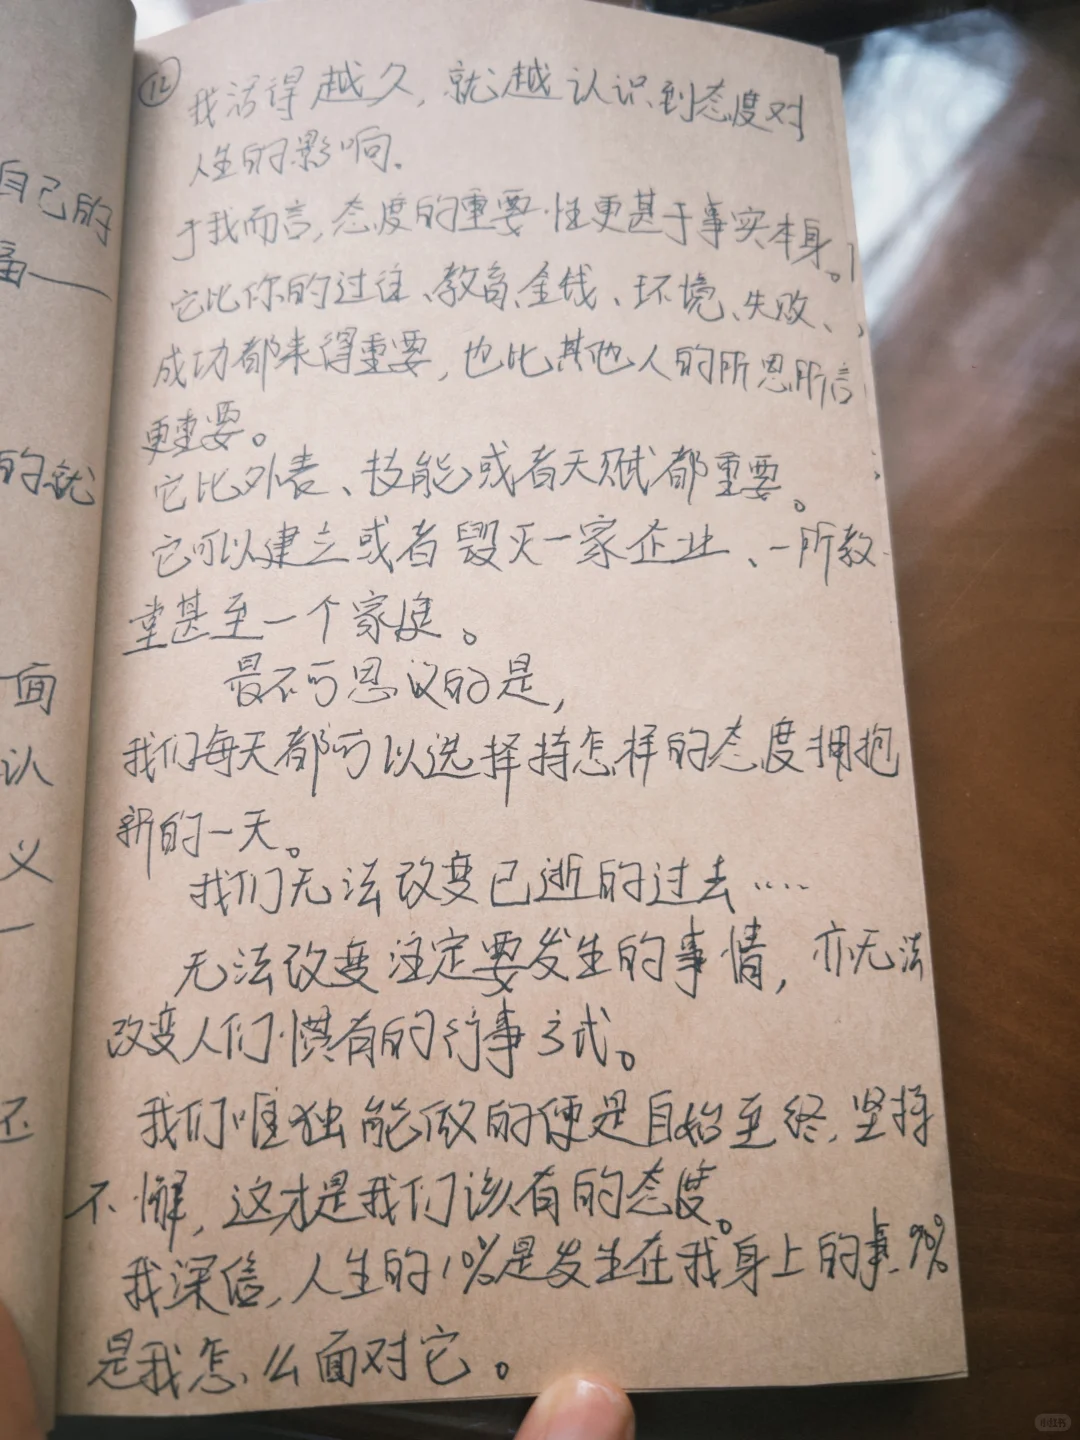 自己的
面
认
义
还
的就
⑫
我活得越久，就越认识到态度对
人生的影响.
于我而言，态度的重要性更甚于事实本身。
它比你的过往、教育、金钱、环境、失败、
成功都来得重要，也比其他人的所思所言
更重要。
它比外表、技能或者天赋都重要。
它可以建立或者毁灭一家企业、一所教
堂甚至一个家庭。
最不可思议的是，
我们每天都可以选择持怎样的态度拥抱
新的一天。
我们无法改变已逝的过去....
无法改变注定要发生的事情，亦无法
改变人们惯有的行事方式。
我们唯独能做的便是自始至终，坚持
不懈，这才是我们该有的态度。
我深信，人生的10%是发生在我身上的事、90%
是我怎么面对它。
小红书